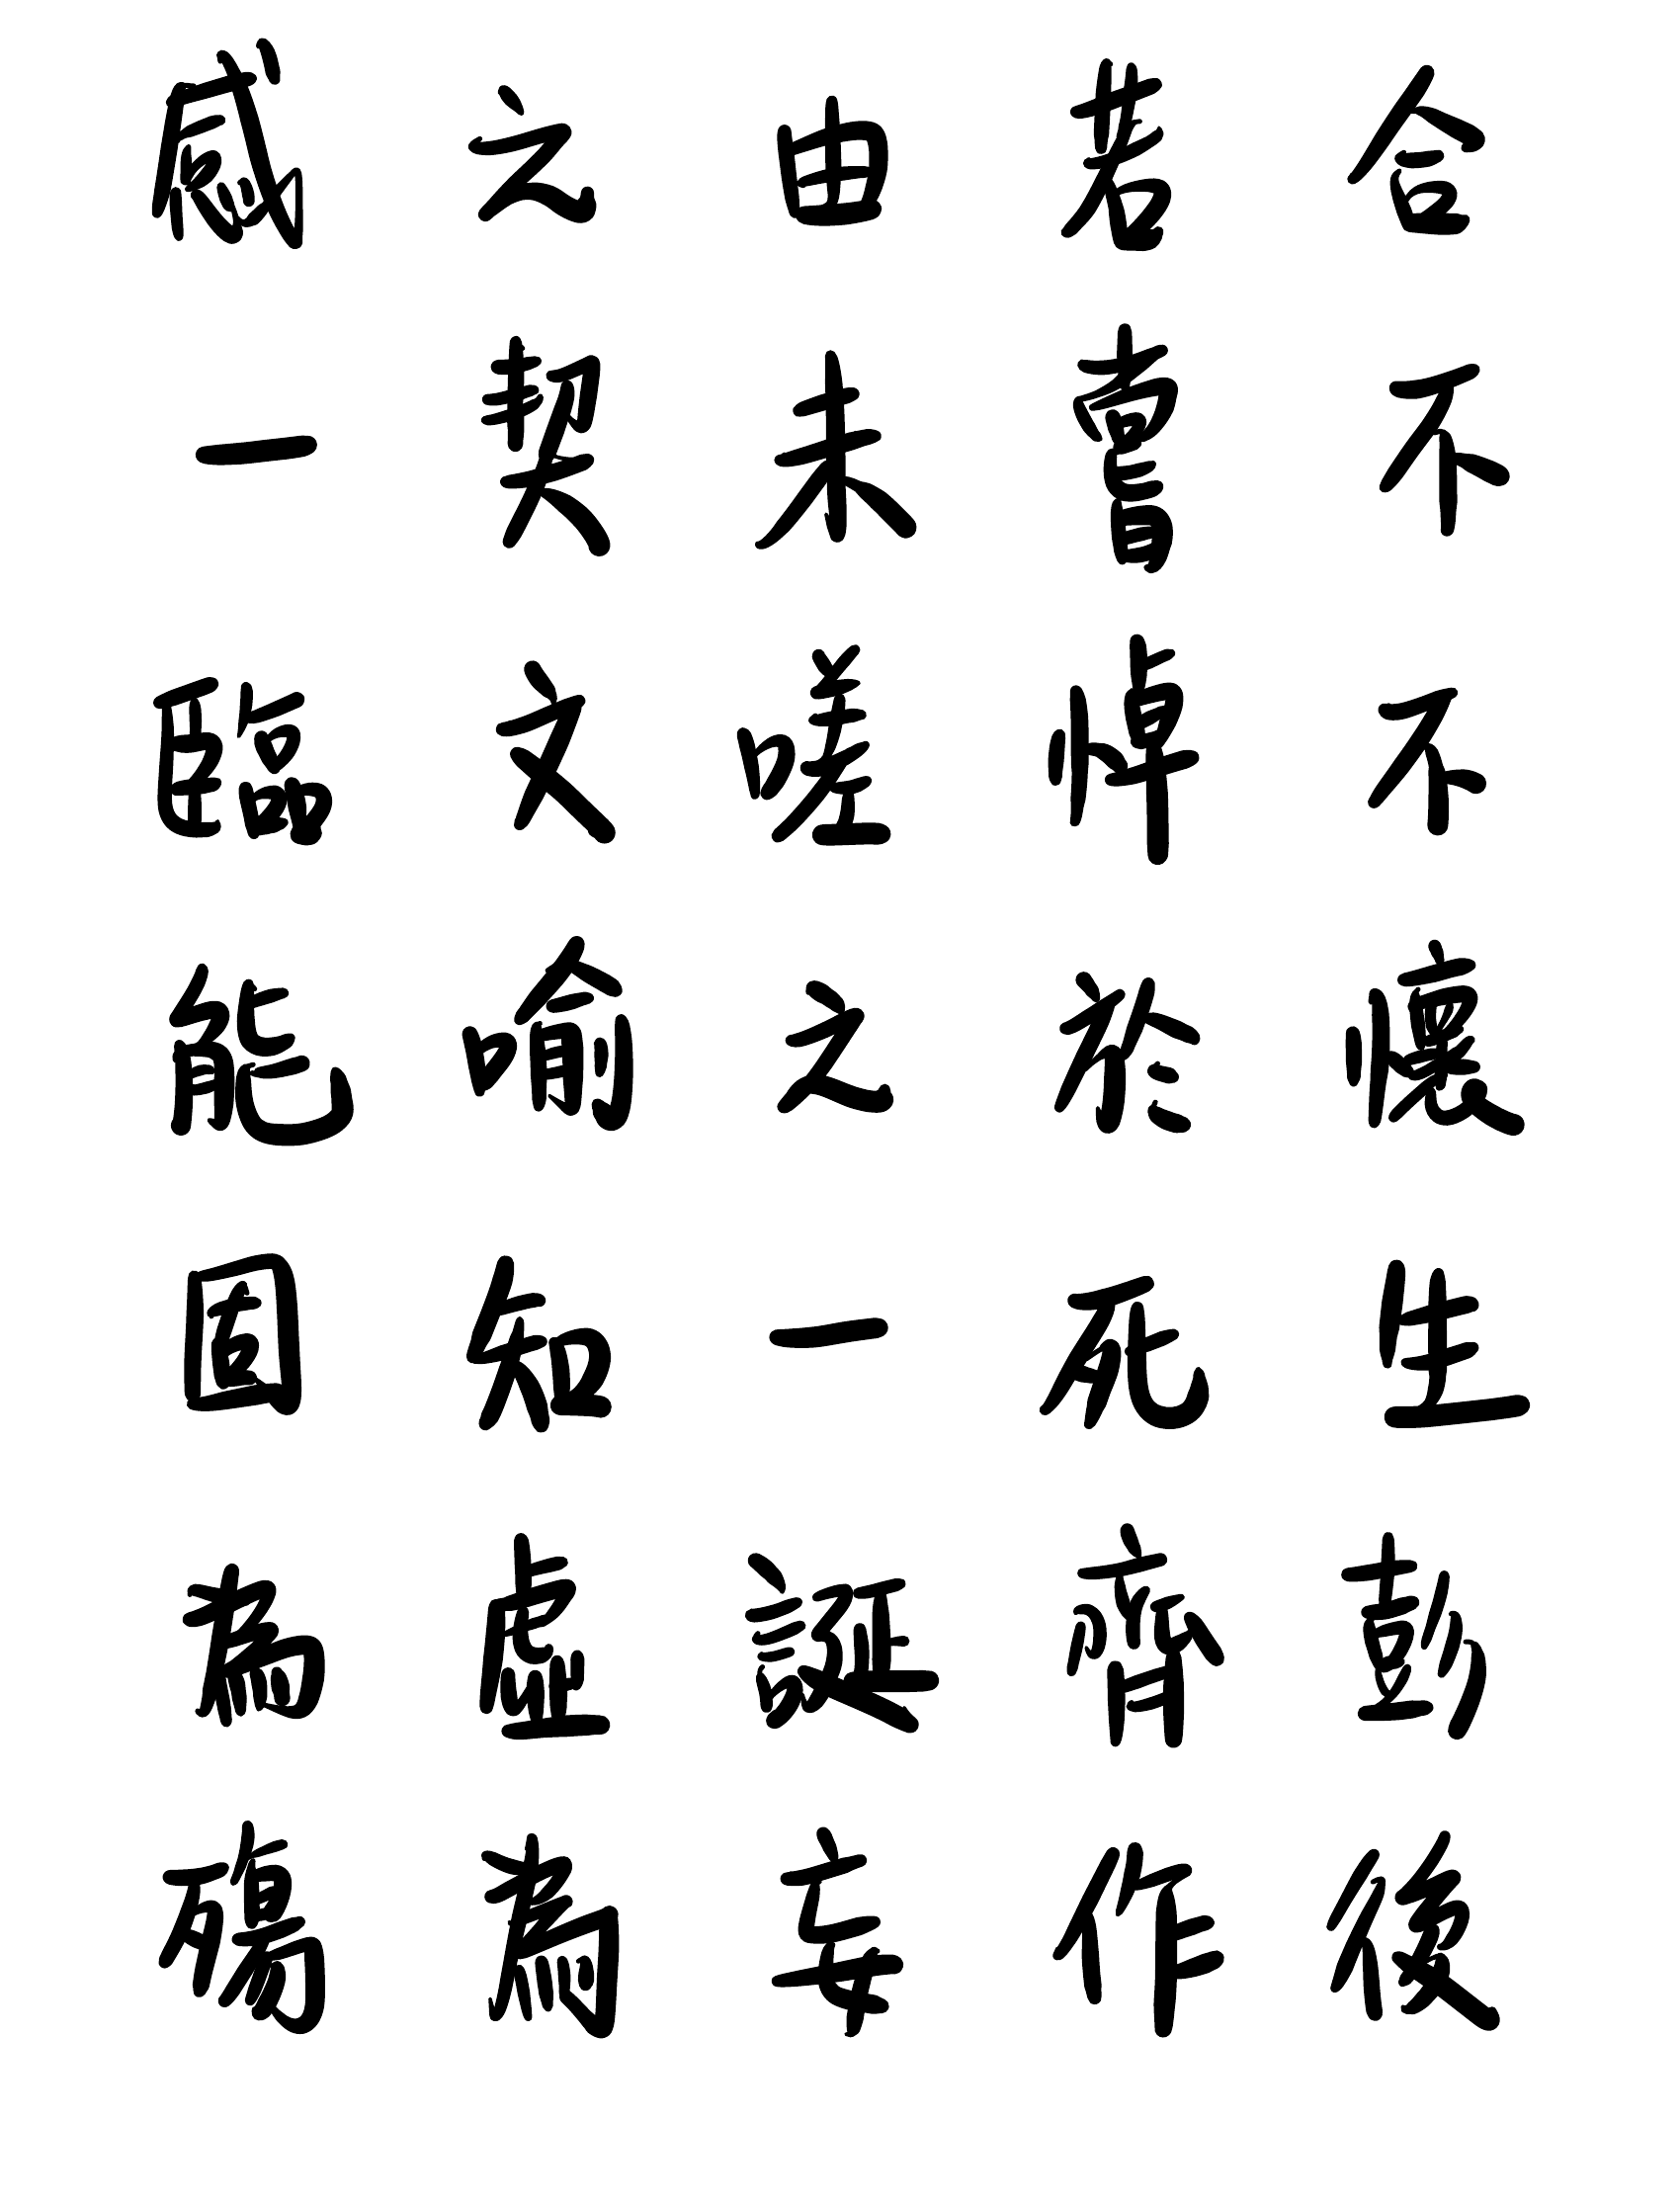 感之由若合
一契未嘗不
臨文嗟悼不
能喻之於懷
固知一死生
為虛誕齊彭
殤為妄作後